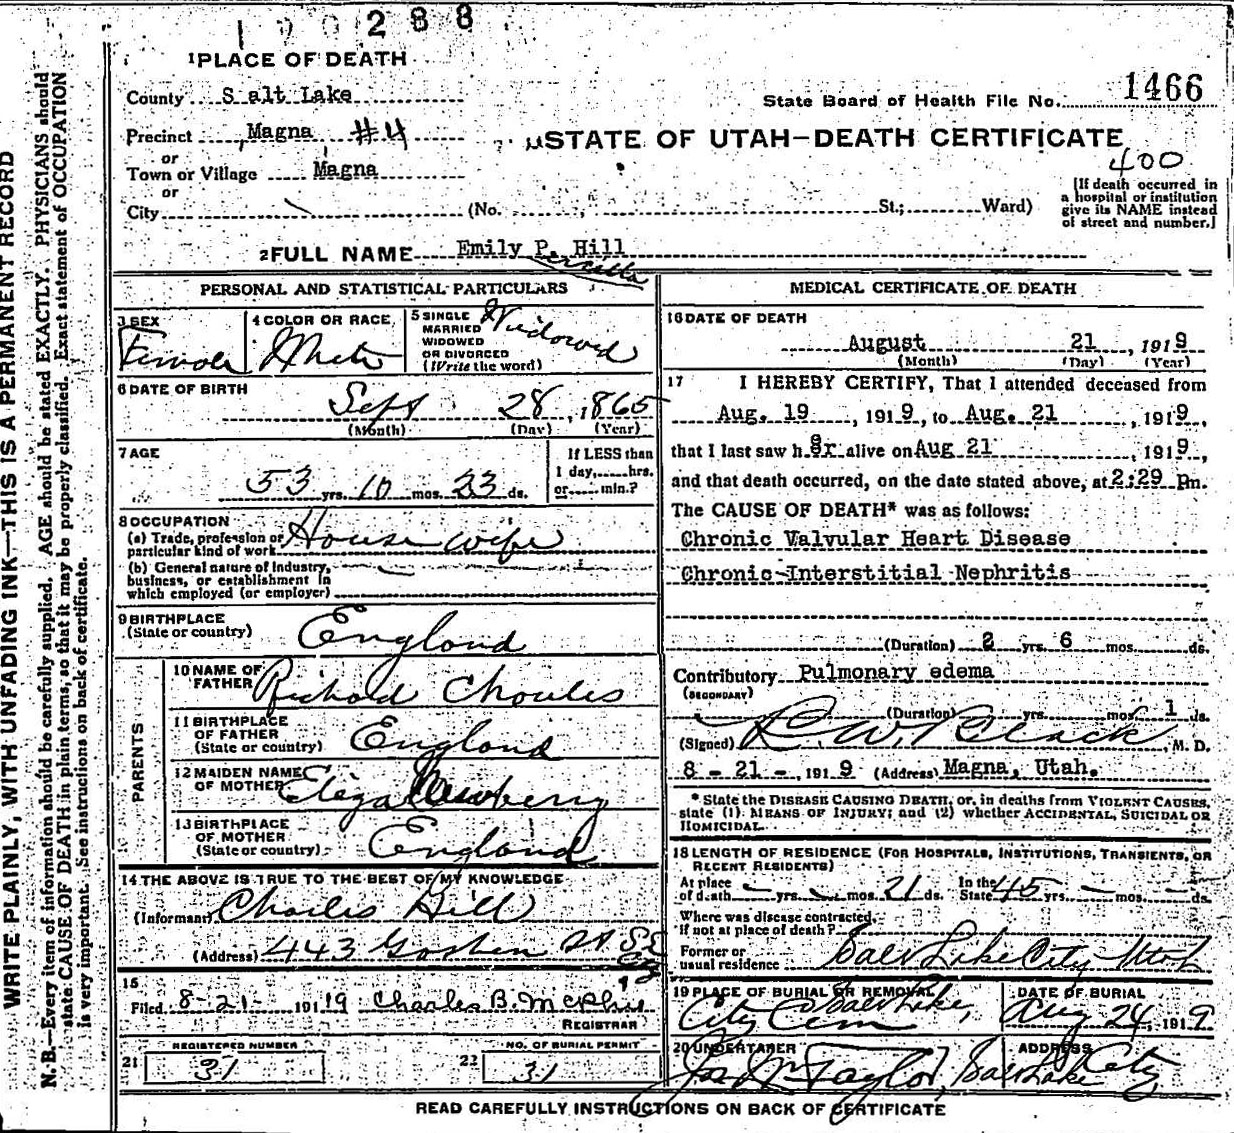 1 0 0 2 8 8
1 PLACE OF DEATH
County S alt Lake
State Board of Health File No. 1466
Precinct Magna #4
STATE OF UTAH—DEATH CERTIFICATE
or
Town or Village Magna
400
or
City (No. St.; Ward)
[If death occurred in
a hospital or institution
give its NAME instead
of street and number.]
2 FULL NAME Emily P. Hill
WRITE PLAINLY, WITH UNFADING INK—THIS IS A PERMANENT RECORD
N. B.—Every item of information should be carefully supplied. AGE should be stated EXACTLY. PHYSICIANS should
state CAUSE OF DEATH in plain terms, so that it may be properly classified. Exact statement of OCCUPATION
is very important. See instructions on back of certificate.
PERSONAL AND STATISTICAL PARTICULARS
3 SEX
Female
4 COLOR OR RACE
White
5 SINGLE
MARRIED
WIDOWED
OR DIVORCED
(Write the word)
Widowed
6 DATE OF BIRTH
Sept 28, 1865
(Month) (Day) (Year)
7 AGE
53 yrs. 10 mos. 23 ds.
If LESS than
1 day, hrs.
or min.?
8 OCCUPATION
(a) Trade, profession or
particular kind of work House wife
(b) General nature of Industry,
business, or establishment in
which employed (or employer)
9 BIRTHPLACE
(State or country) England
PARENTS
10 NAME OF
FATHER Richard Choules
11 BIRTHPLACE
OF FATHER
(State or country) England
12 MAIDEN NAME
OF MOTHER Eliza Newberry
13 BIRTHPLACE
OF MOTHER
(State or country) England
14 THE ABOVE IS TRUE TO THE BEST OF MY KNOWLEDGE
(Informant) Charles Hill
(Address) 443 Goshen St S.L.
15
Filed 8-21- 191 19 Charles B. McPhie
REGISTRAR
21
REGISTERED NUMBER
31
22
NO. OF BURIAL PERMIT
31
MEDICAL CERTIFICATE OF DEATH
16 DATE OF DEATH
August 21, 1919
(Month) (Day) (Year)
17 I HEREBY CERTIFY, That I attended deceased from
Aug. 19, 1919, to Aug. 21, 1919,
that I last saw her alive on Aug 21, 1919,
and that death occurred, on the date stated above, at 2:29 Pm.
The CAUSE OF DEATH* was as follows:
Chronic Valvular Heart Disease
Chronic-Interstitial Nephritis
(Duration) 2 yrs. 6 mos. ds.
Contributory Pulmonary edema
(SECONDARY)
(Duration) yrs. mos. 1 ds.
(Signed) R. W. Black, M. D.
8 - 21 -, 1919 (Address) Magna, Utah.
* State the DISEASE CAUSING DEATH, or, in deaths from VIOLENT CAUSES,
state (1) MEANS OF INJURY; and (2) whether ACCIDENTAL, SUICIDAL OR
HOMICIDAL.
18 LENGTH OF RESIDENCE (FOR HOSPITALS, INSTITUTIONS, TRANSIENTS, OR
RECENT RESIDENTS)
At place
of death yrs. mos. 21 ds. In the
State 45 yrs. mos. ds.
Where was disease contracted,
If not at place of death?
Former or
usual residence Salt Lake City Utah
19 PLACE OF BURIAL OR REMOVAL
Salt Lake,
City Cem
DATE OF BURIAL
Aug 24, 1919
20 UNDERTAKER
Jos Wm Taylor,
ADDRESS
Salt Lake City
READ CAREFULLY INSTRUCTIONS ON BACK OF CERTIFICATE